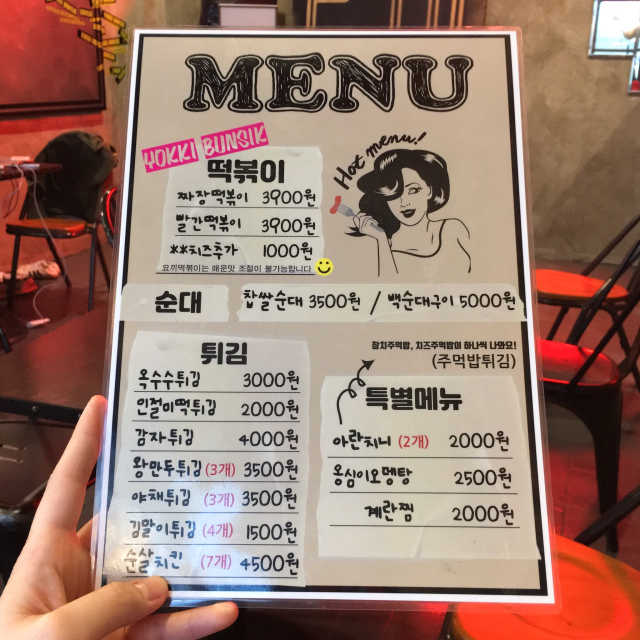 MENU
YOKKI BUNSIK
떡볶이
Hot menu!
짜장떡볶이 3900원
빨간떡볶이 3900원
**치즈추가 1000원
요끼떡볶이는 매운맛 조절이 불가능합니다
순대 찹쌀순대 3500원 / 백순대구이 5000원
튀김
옥수수튀김 3000원
인절미떡튀김 2000원
감자튀김 4000원
왕만두튀김 (3개) 3500원
야채튀김 (3개) 3500원
김말이튀김 (4개) 1500원
순살치킨 (7개) 4500원
참치주먹밥, 치즈주먹밥이 하나씩 나와요!
(주먹밥튀김)
특별메뉴
아란치니 (2개) 2000원
옹심이오뎅탕 2500원
계란찜 2000원